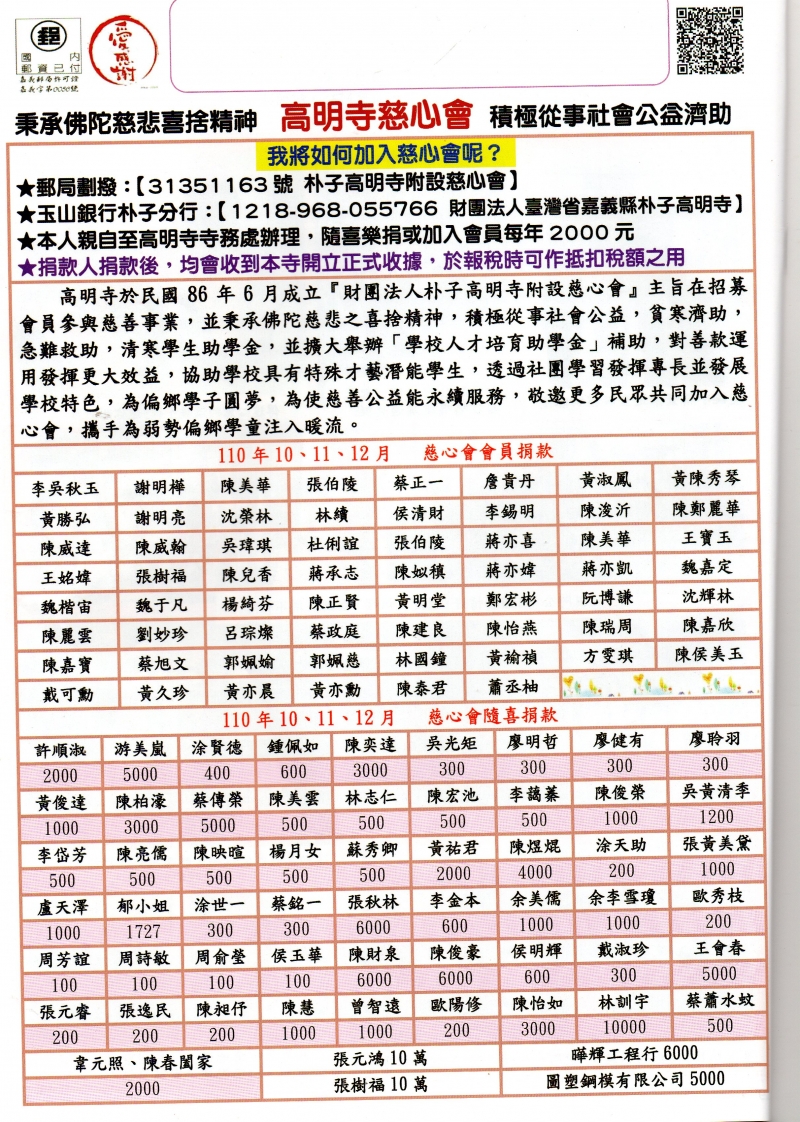 郵
國內
郵資已付
嘉義郵局許可證
嘉義字第0050號
愛感謝
秉承佛陀慈悲喜捨精神 高明寺慈心會 積極從事社會公益濟助
我將如何加入慈心會呢？
★郵局劃撥：【31351163號 朴子高明寺附設慈心會】
★玉山銀行朴子分行：【1218-968-055766 財團法人臺灣省嘉義縣朴子高明寺】
★本人親自至高明寺寺務處辦理，隨喜樂捐或加入會員每年 2000 元
★捐款人捐款後，均會收到本寺開立正式收據，於報稅時可作抵扣稅額之用
高明寺於民國 86 年 6 月成立『財團法人朴子高明寺附設慈心會』主旨在招募
會員參與慈善事業，並秉承佛陀慈悲之喜捨精神，積極從事社會公益，貧寒濟助，
急難救助，清寒學生助學金，並擴大舉辦「學校人才培育助學金」補助，對善款運
用發揮更大效益，協助學校具有特殊才藝潛能學生，透過社團學習發揮專長並發展
學校特色，為偏鄉學子圓夢，為使慈善公益能永續服務，敬邀更多民眾共同加入慈
心會，攜手為弱勢偏鄉學童注入暖流。
110 年 10、11、12 月 慈心會會員捐款
李吳秋玉 謝明樺 陳美華 張伯陵 蔡正一 詹貴丹 黃淑鳳 黃陳秀琴
黃勝弘 謝明亮 沈榮林 林續 侯清財 李錫明 陳浚沂 陳鄭麗華
陳威達 陳威翰 吳瑋琪 杜俐誼 張伯陵 蔣亦喜 陳美華 王寶玉
王姳媁 張樹福 陳兒香 蔣承志 陳姒稹 蔣亦媁 蔣亦凱 魏嘉定
魏楷宙 魏于凡 楊綺芬 陳正賢 黃明堂 鄭宏彬 阮博謙 沈輝林
陳麗雲 劉妙珍 呂琮燦 蔡政庭 陳建良 陳怡燕 陳瑞周 陳嘉欣
陳嘉寶 蔡旭文 郭姵媮 郭姵慈 林國鐘 黃褕禎 方雯琪 陳侯美玉
戴可勳 黃久珍 黃亦晨 黃亦勳 陳泰君 蕭丞柚
110 年 10、11、12 月 慈心會隨喜捐款
許順淑 游美嵐 涂賢德 鍾佩如 陳奕達 吳光矩 廖明哲 廖健有 廖聆羽
2000 5000 400 600 3000 300 300 300 300
黃俊達 陳柏濠 蔡傳榮 陳美雲 林志仁 陳宏池 李藹蓁 陳俊榮 吳黃清季
1000 3000 5000 500 500 500 500 1000 1200
李岱芳 陳亮儒 陳映暄 楊月女 蘇秀卿 黃祐君 陳煜焜 涂天助 張黃美黛
500 500 500 500 500 2000 4000 200 1000
盧天澤 郁小姐 涂世一 蔡銘一 張秋林 李金本 余美儒 余李雪瓊 歐秀枝
1000 1727 300 300 6000 600 1000 1000 200
周芳誼 周詩敏 周俞瑩 侯玉華 陳財泉 陳俊豪 侯明輝 戴淑珍 王會春
100 100 100 100 6000 6000 600 300 5000
張元睿 張逸民 陳昶伃 陳慧 曾智遠 歐陽修 陳怡如 林訓宇 蔡蕭水蚊
200 200 200 1000 1000 200 3000 10000 500
韋元照、陳春閨家 張元鴻 10 萬 曄輝工程行 6000
2000 張樹福 10 萬 圖塑鋼模有限公司 5000